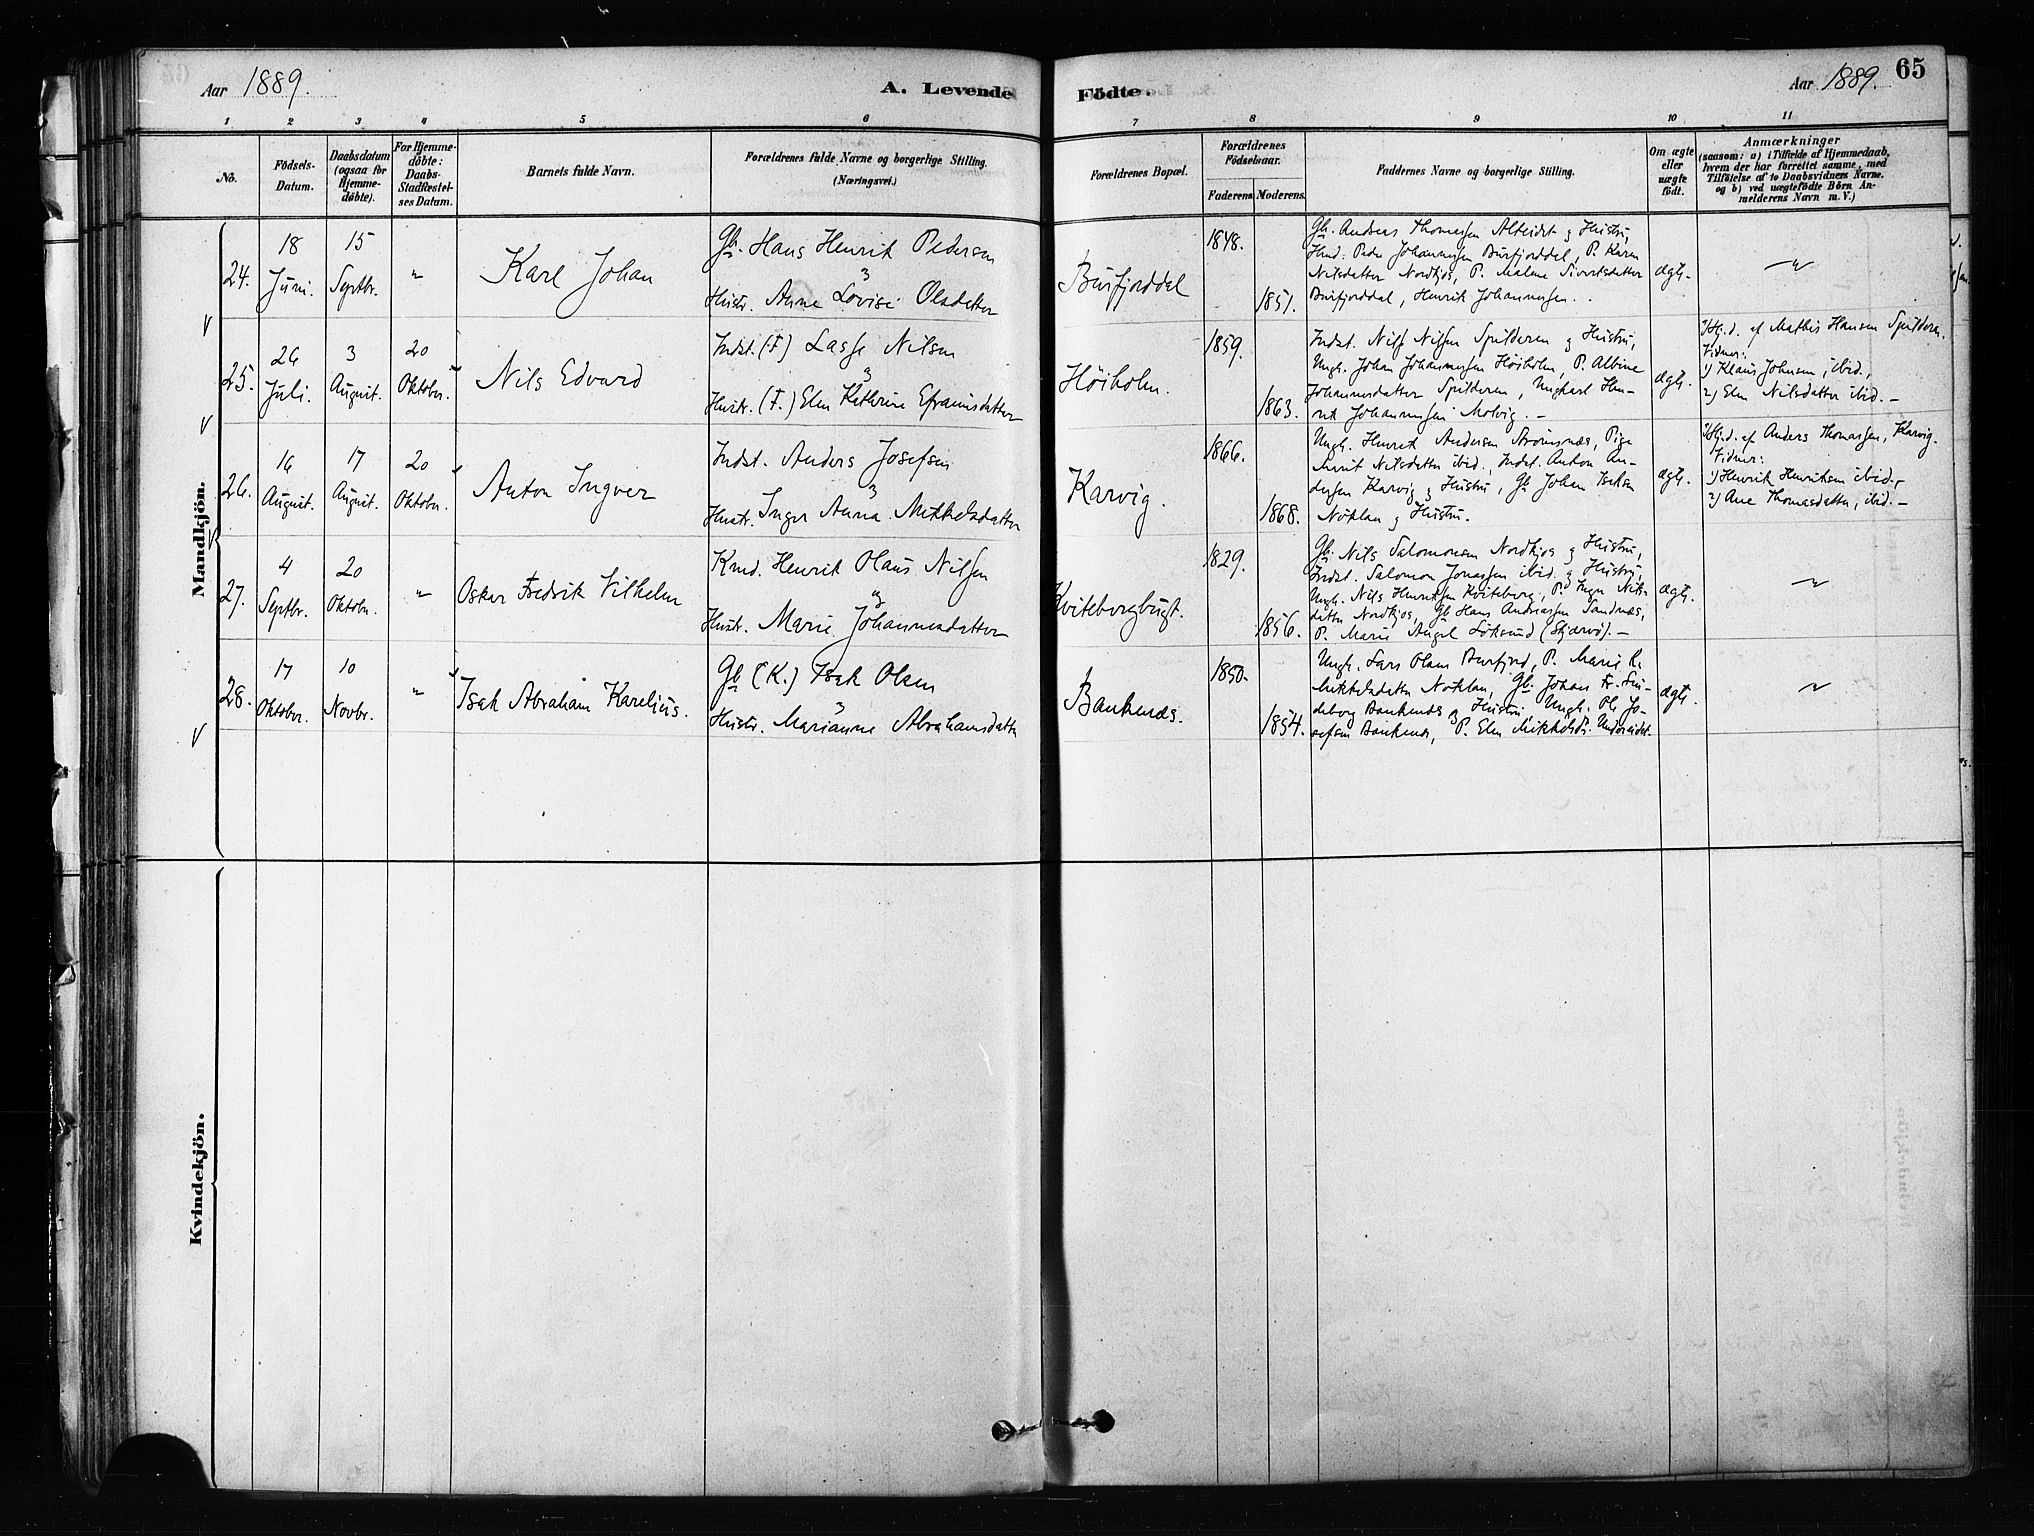 Aar 1889. A. Levende Födte. Aar 1889. 65
1 2 3 4 5 6 7 8 9 10 11
No.
Födsels-Datum.
Daabsdatum (ogsaa for Hjemme-döbte).
For Hjemme-döbte: Daabs-Stadfæstel-ses Datum.
Barnets fulde Navn.
Forældrenes fulde Navne og borgerlige Stilling. (Næringsvei.)
Forældrenes Bopæl.
Forældrenes Födselsaar.
Faderens Moderens.
Faddernes Navne og borgerlige Stilling.
Om ægte eller uægte födt.
Anmærkninger
(saasom: a) i Tilfælde af Hjemmedaab,
hvem der har forrettet samme, med
Tilföielse af to Daabsvidners Navne,
og b) ved uægtefödte Börn An-
melderens Navn m. V.)
Mandkjön.
24. 18 Juni. 15 Septbr. „ Karl Johan
Gb. Hans Henrik Pedersen
og
Hustr. Anne Lovise Olsdatter
Burfjorddal 1848. 1851.
Gb. Andreas Thomassen Alteidet og Hustru,
Ind. Peder Johannessen Burfjorddal, P. Karen
Nilsdatter Nordkjos, P. Malene Sivertsdatter
Burfjorddal, Henrik Johannessen.
ægte. „
25. 26 Juli. 3 August. 20 Oktober. Nils Edvard
Indst. (F) Lasse Nilsen
og
Hustr. (F.) Elen Kathrine Efraimsdatter
Höiholm. 1859. 1863.
Indst. Nils Nilsen Spilderen og Hustru,
Ungk. Johan Johannessen Höiholm, P. Albine
Johannesdatter Spilderen, Ungkarl Hen-
rik Johannessen Molvig. –
ægte.
Hj.d. af Mathis Hansen Spilderen.
Vidner:
1) Klaus Johnsen, ibid.,
2) Elen Nilsdatter ibid. –
26. 16 August. 17 August. 20 Oktober. Anton Ingver
Indst. Anders Josefsen
og
Hustr. Inger Anna Mikkelsdatter
Karvig. 1866. 1868.
Ungk. Henrik Andersen Strömsnæs, Pige
Marit Nilsdatter ibid., Indst. Anton An-
dersen Karvig og Hustru, Gb. Johan Isaksen
Noklan og Hustru.
ægte.
Hj.d. af Anders Thomassen, Karvig.
Vidner:
1) Henrik Henriksen ibid.,
2) Ane Thomasdatter, ibid. –
27. 4 Septbr. 20 Oktobr. „ Oskar Fredrik Vilhelm
Kmd. Henrik Olaus Nilsen
og
Hustr. Marie Johannesdatter
Kviteborgbugt. 1829. 1856.
Gb. Nils Salomonsen Nordkjos og Hustru,
Indst. Salomon Jonassen ibid. og Hustru,
Ungk. Nils Henriksen Kviteborg, P. Inger Nils-
datter Nordkjos, Gb. Hans Andreassen Sandnæs,
P. Marie Angel Löksund (Skjærvö). –
ægte. „
28. 17 Oktober. 10 Novbr. „ Isak Abraham Karelius.
Gb. (K.) Isak Olsen
og
Hustr. Marianne Abrahamsdatter
Bankenæs. 1850. 1854.
Ungk. Lars Olsen Burfjord, P. Marie K.
Mikkelsdatter Noklan, Gb. Johan Fr. Sni-
deborg Bankenæs og Hustru, Ungk. Ole Jo-
sefsen Bankenæs, P. Elen Mikkelsdr. Undereidet.
ægte. „
Kvindekjön.